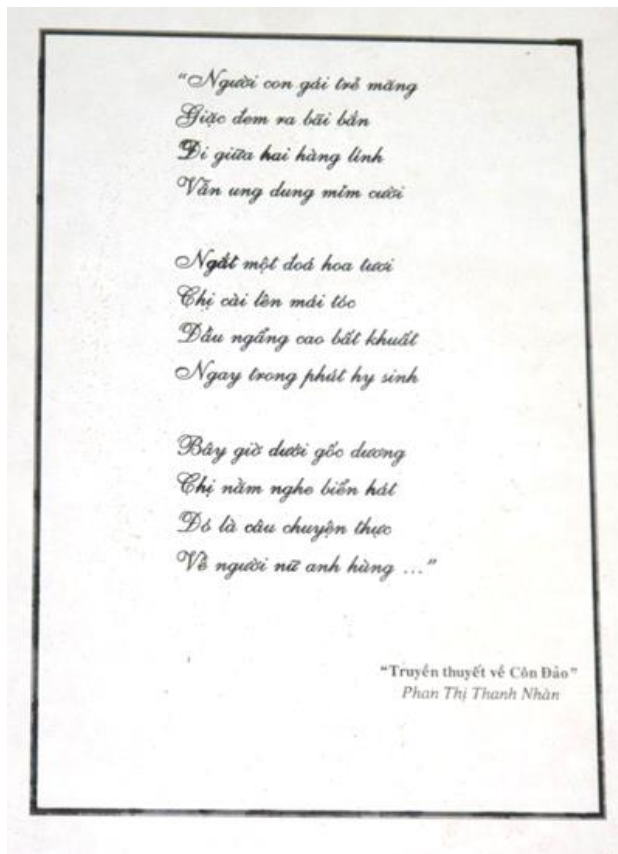 “Người con gái trẻ măng
Giặc đem ra bãi bắn
Đi giữa hai hàng lính
Vẫn ung dung mỉm cười
Ngắt một đoá hoa tươi
Chị cài lên mái tóc
Đầu ngẩng cao bất khuất
Ngay trong phút hy sinh
Bây giờ dưới gốc dương
Chị nằm nghe biển hát
Đó là câu chuyện thực
Về người nữ anh hùng ...”
“Truyền thuyết về Côn Đảo”
Phan Thị Thanh Nhàn